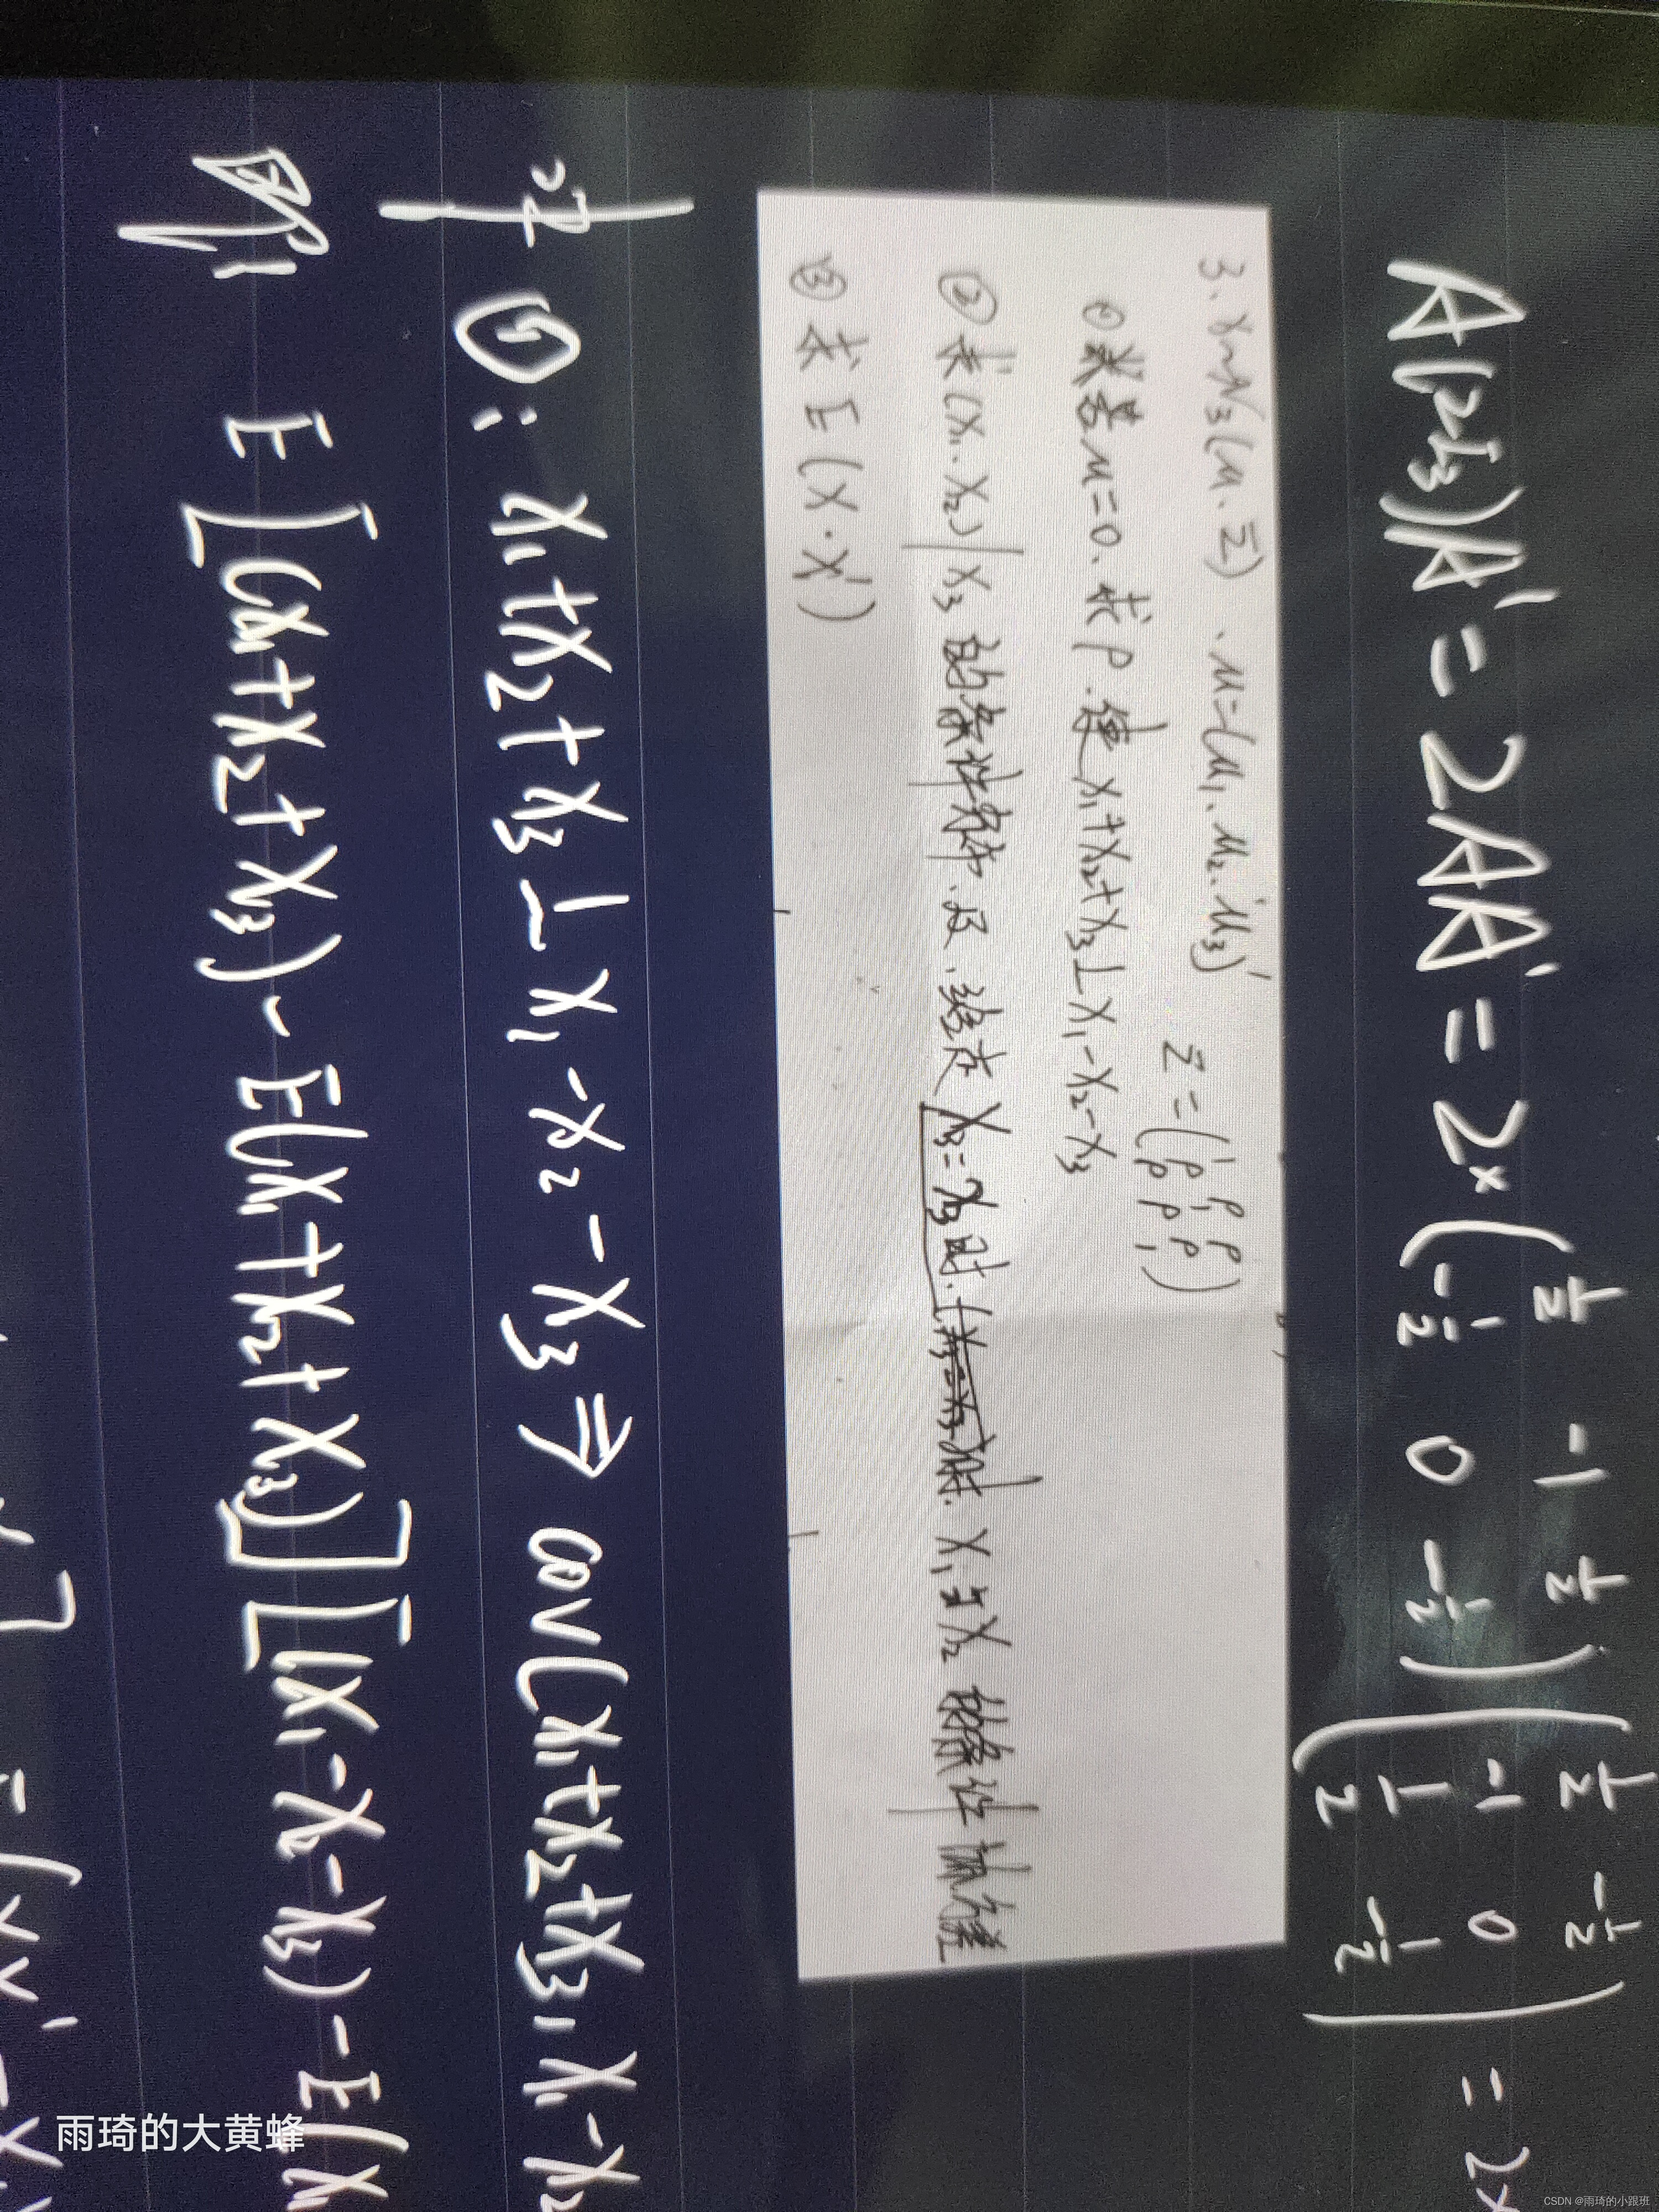 A(2I₃)A' = 2AA' = 2×(½ -1 ½
-½ 0 -½)(½ -½
-1 0
½ -½) = 2×
3. X~N₃(μ.Σ) . μ=(μ₁.μ₂.μ₃)' Σ=(1 ρ ρ
ρ 1 ρ
ρ ρ 1)
① 若μ=0. 求ρ. 使 X₁+X₂+X₃⊥X₁-X₂-X₃
② 求(X₁.X₂)|X₃ 的条件分布. 及. 给定 X₃=x₃时. X₁与X₂ 的条件协方差
③ 求 E(X·X')
①: X₁+X₂+X₃ ⊥ X₁-X₂-X₃ ⇒ cov(X₁+X₂+X₃, X₁-X₂
即 E[(X₁+X₂+X₃)-E(X₁+X₂+X₃)][(X₁-X₂-X₃)-E(X₁
雨琦的大黄蜂
CSDN @雨琦的小跟班